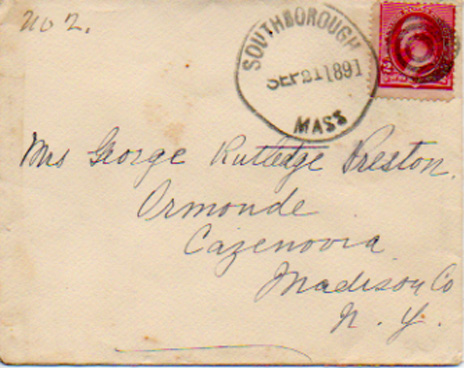 No 2.
SOUTHBOROUGH
SEP 21 1891
MASS
Mrs George Rutledge Preston.
Ormonde
Cazenovia
Madison Co
N. Y.